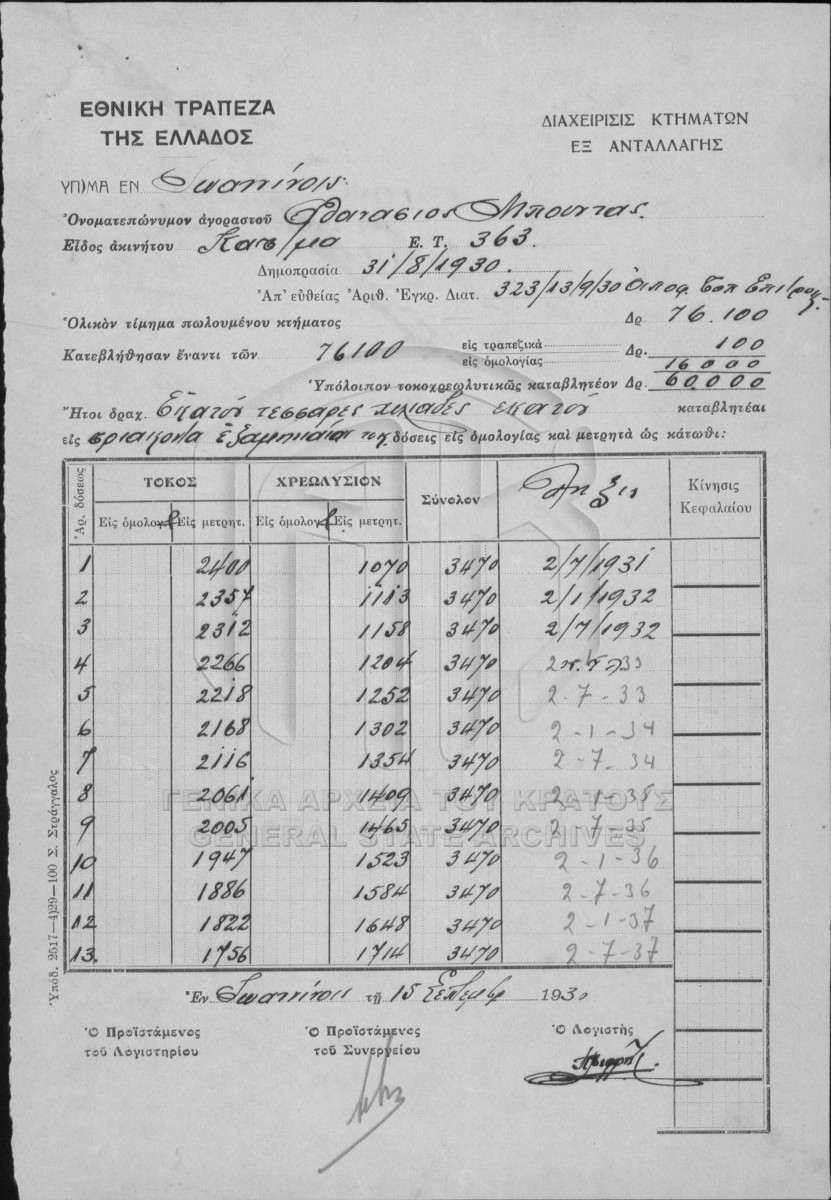 ΕΘΝΙΚΗ ΤΡΑΠΕΖΑ
ΤΗΣ ΕΛΛΑΔΟΣ
ΔΙΑΧΕΙΡΙΣΙΣ ΚΤΗΜΑΤΩΝ
ΕΞ ΑΝΤΑΛΛΑΓΗΣ
ΥΠ)ΜΑ ΕΝ Ιωαννίνοις
Ὀνοματεπώνυμον ἀγοραστοῦ Αθανασιος Μπουντας
Εἶδος ἀκινήτου Κατ/μα Ε. Τ. 363.
Δημοπρασία 31/8/1930.
Ἀπ' εὐθείας Ἀριθ. Ἐγκρ. Διατ. 323/13/9/30 Αποφ. Τοπ Επιτροπ.
Ὁλικὸν τίμημα πωλουμένου κτήματος Δρ. 76.100
Κατεβλήθησαν ἔναντι τῶν 76100 εἰς τραπεζικὰ Δρ. 100
εἰς ὁμολογίας 16000
Ὑπόλοιπον τοκοχρεωλυτικῶς καταβλητέον Δρ. 60.000
Ἤτοι δραχ. Εκατον τεσσαρες χιλιαδες εκατον καταβλητέαι
εἰς τριακοντα εξαμηνιαιας δόσεις εἰς ὁμολογίας καὶ μετρητὰ ὡς κάτωθι:
Ἀρ. δόσεως ΤΟΚΟΣ ΧΡΕΩΛΥΣΙΟΝ Σύνολον Ληξις Κίνησις Κεφαλαίου
Εἰς ὁμολογ. Εἰς μετρητ. Εἰς ὁμολογ. Εἰς μετρητ.
1 2400 1070 3470 2/7/1931
2 2357 1113 3470 2/1/1932
3 2312 1158 3470 2/7/1932
4 2266 1204 3470 33
5 2218 1252 3470 2-7-33
6 2168 1302 3470 2-1-34
7 2116 1354 3470 2-7-34
8 2061 1409 3470 2-1-35
9 2005 1465 3470 2-7-35
10 1947 1523 3470 2-1-36
11 1886 1584 3470 2-7-36
12 1822 1648 3470 2-1-37
13. 1756 1714 3470 2-7-37
ΓΕΝΙΚΑ ΑΡΧΕΙΑ ΤΟΥ ΚΡΑΤΟΥΣ
GENERAL STATE ARCHIVES
Ἐν Ιωαννίνοις τῇ 15 Σεπτεμβρ 1930
Ὁ Προϊστάμενος
τοῦ Λογιστηρίου
Ὁ Προϊστάμενος
τοῦ Συνεργείου
Ὁ Λογιστὴς
Ὑπόδ. 2517—4)29—100 Σ. Στράγγαλος